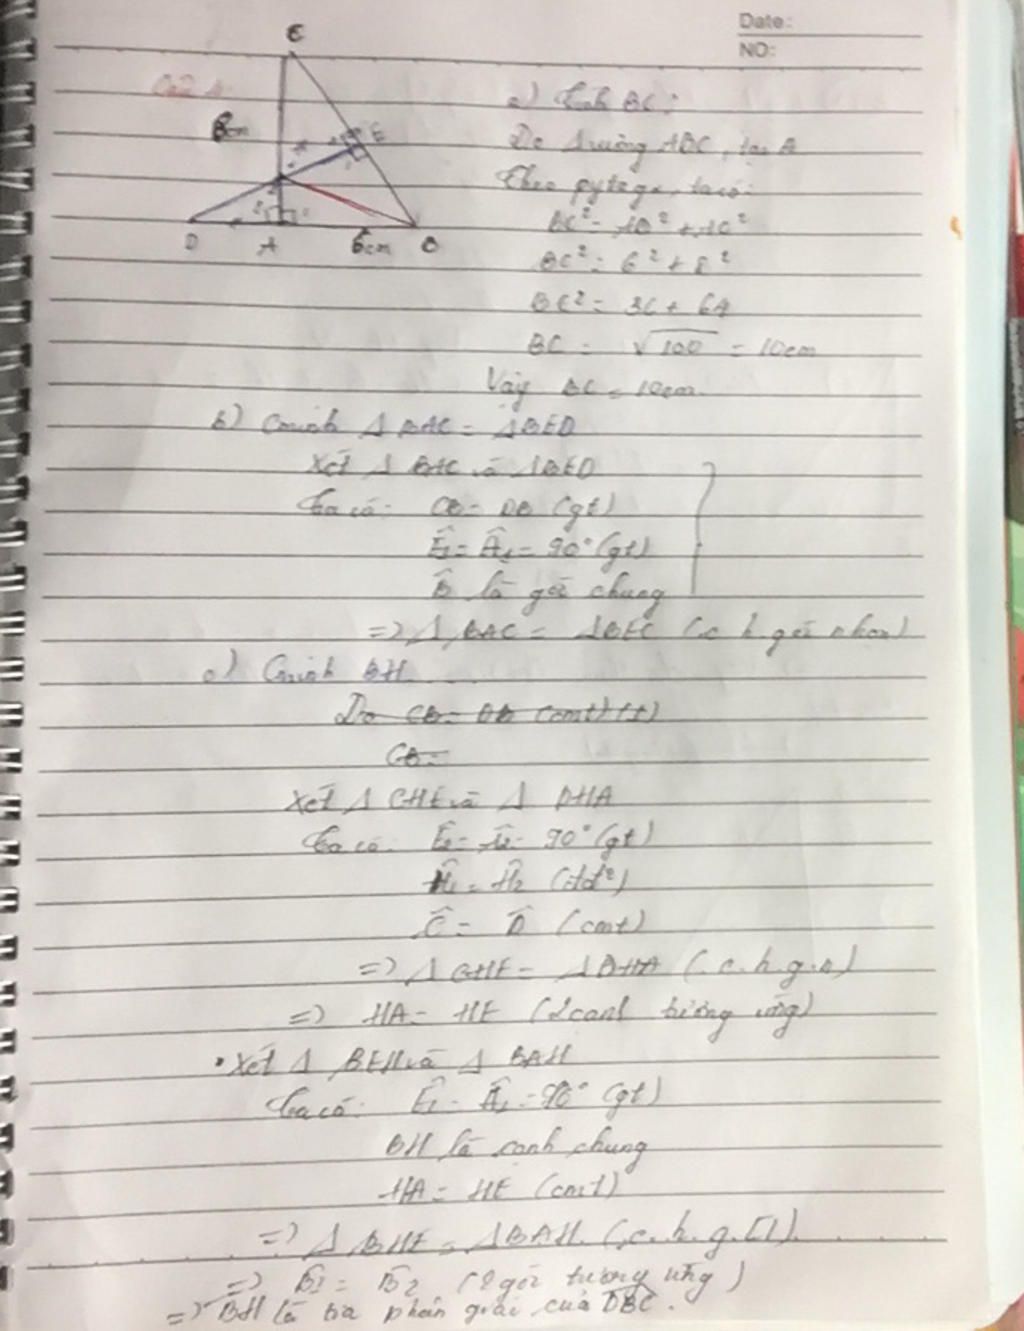 Date:
NO:
C
8cm
E
D
A
6cm
B
a) Tính BC:
Do Δ vuông ABC, tại A
Theo pytago, ta có:
BC² = AB² + AC²
BC² = 6² + 8²
BC² = 36 + 64
BC = √100 = 10cm
Vậy BC = 10cm.
b) Cminh Δ BAC = ΔBED
Xét Δ BAC và ΔBED
Ta có: CB = DB (gt)
Ê₁ = Â₁ = 90° (gt)
B̂ là góc chung
=> Δ BAC = ΔBEC (c.h.góc nhọn)
c) Cminh BH
Do CB = DB (cmt) (1)
CB =
Xét Δ CHE và Δ DHA
Ta có: Ê₂ = Â₂ = 90° (gt)
Ĥ₁ = Ĥ₂ (đđ²)
Ĉ = D̂ (cmt)
=> Δ CHE = ΔDHA (c.h.g.n)
=> HA = HE (2 cạnh tương ứng)
• Xét Δ BEH và Δ BAH
Ta có: Ê₁ = Â₁ = 90° (gt)
BH là cạnh chung
HA = HE (cmt)
=> Δ BHE = ΔBAH (c.h.g.
=> B̂₁ = B̂₂ (2 góc tương ứng)
=> BH là tia phân giác của DBC.